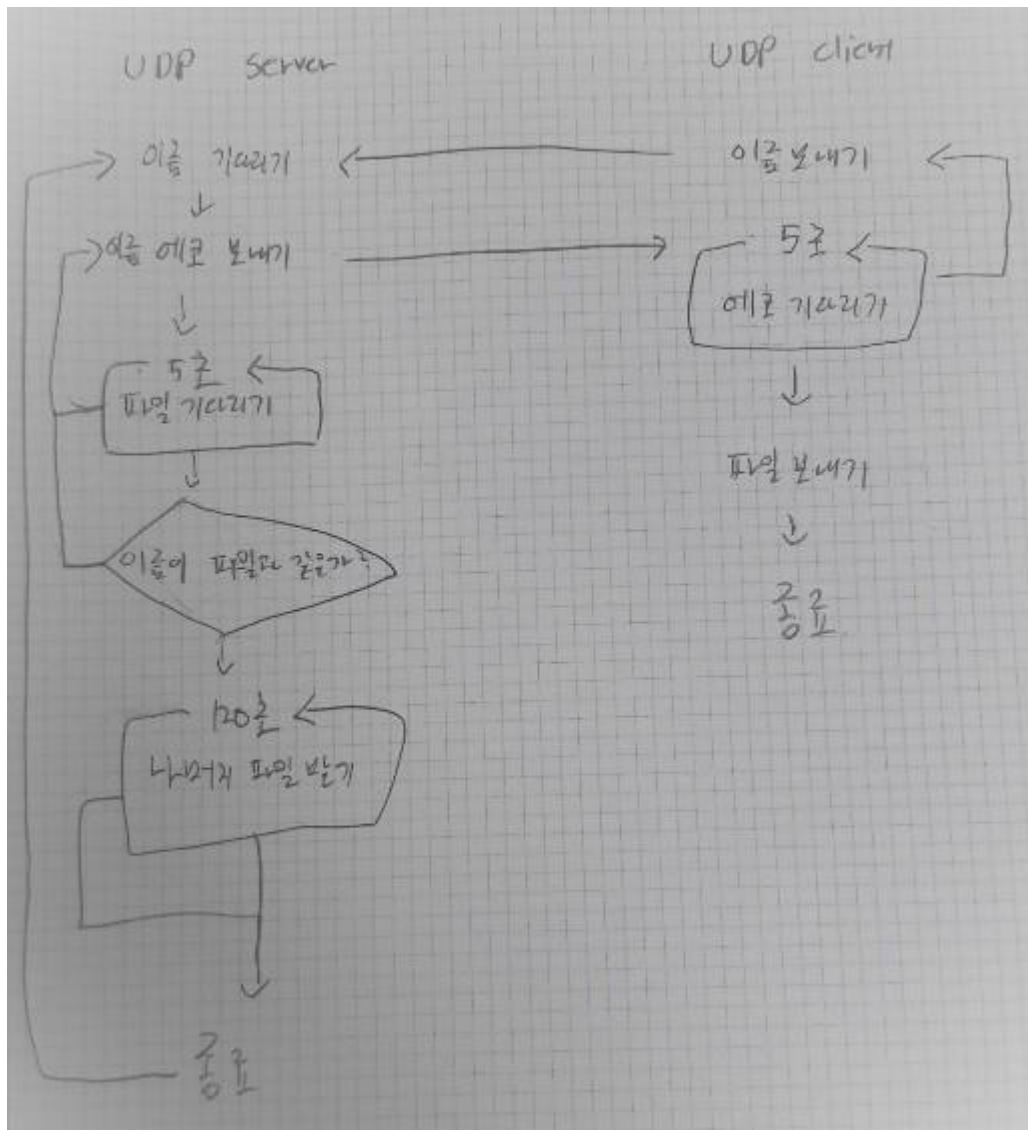 UDP server
이름 기다리기
이름 에코 보내기
5초
파일 기다리기
이름이 파일과 같은가?
120초
나머지 파일 받기
종료
UDP client
이름 보내기
5초
에코 기다리기
파일 보내기
종료